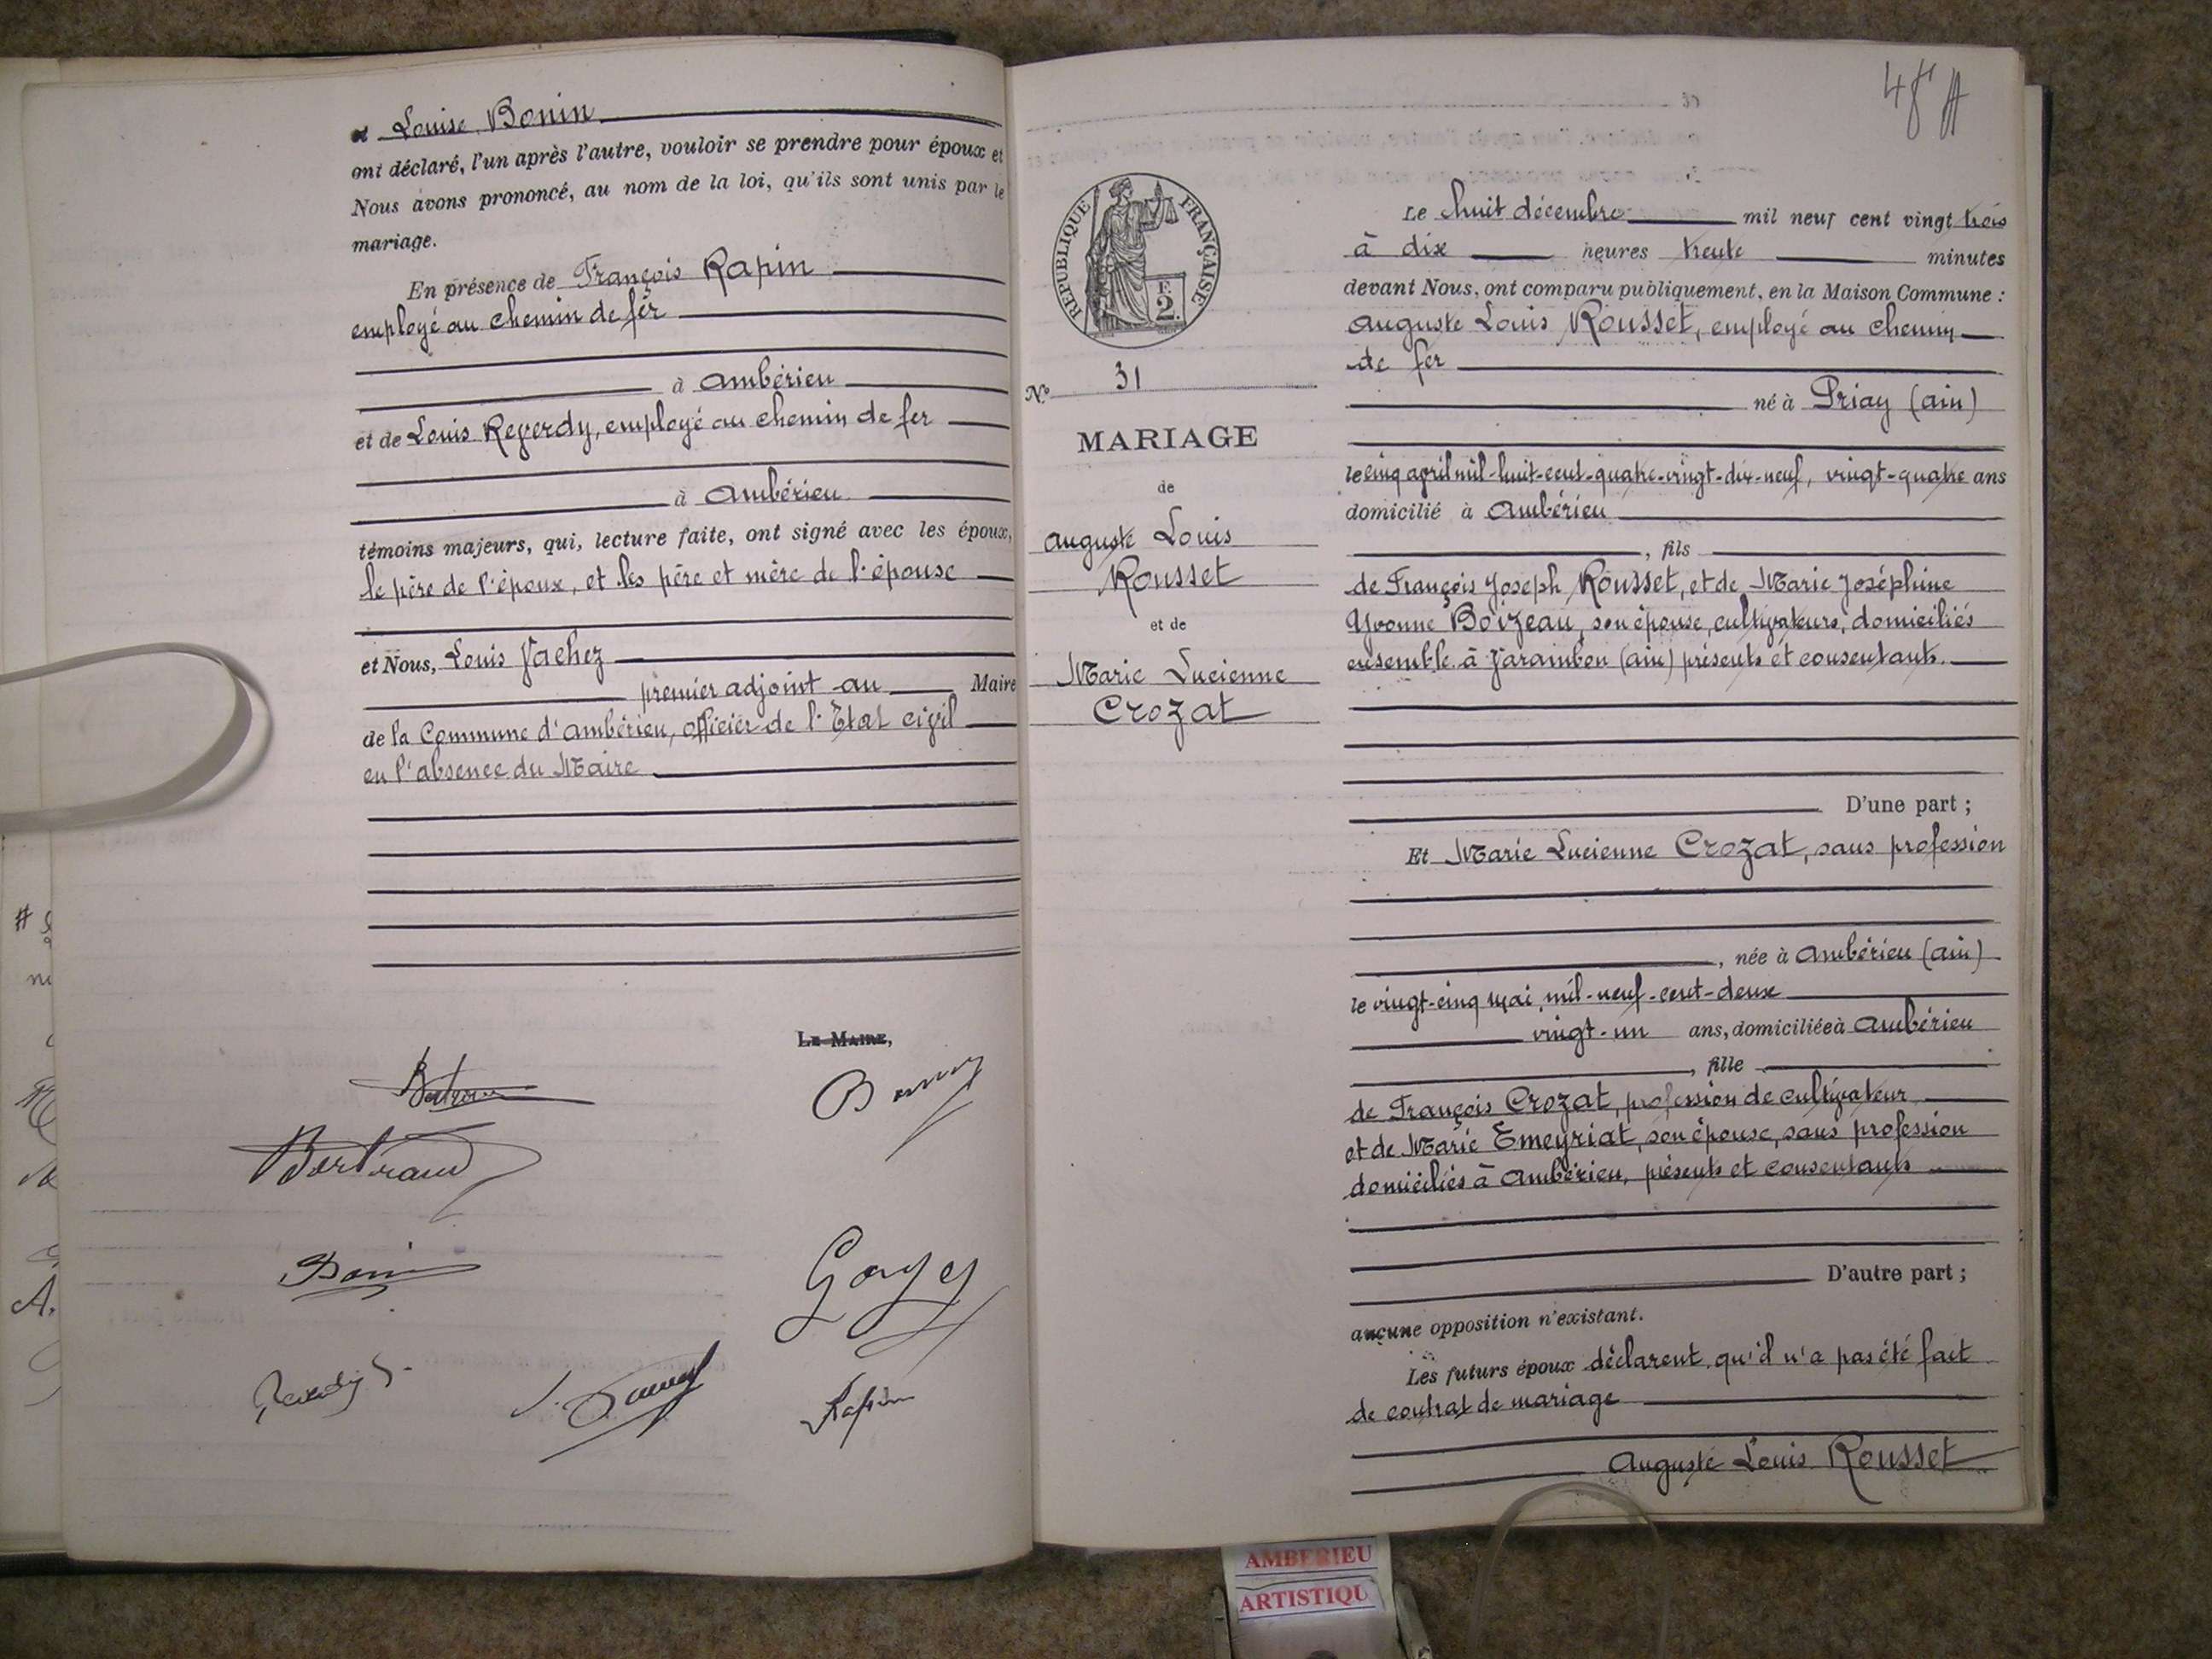 et Louise Bonin
ont déclaré, l'un après l'autre, vouloir se prendre pour époux et
Nous avons prononcé, au nom de la loi, qu'ils sont unis par le
mariage.
En présence de François Rapin
employé au chemin de fer
à Ambérieu
et de Louis Reverdy, employé au chemin de fer
à Ambérieu
témoins majeurs, qui, lecture faite, ont signé avec les époux,
le père de l'époux, et les père et mère de l'épouse
et Nous, Louis Jachez
premier adjoint au Maire
de la Commune d'Ambérieu, officier de l'État civil
en l'absence du Maire
LE MAIRE,
Bertrand
Bonin
Rapin
48 A
REPUBLIQUE FRANÇAISE
F.
2.
N° 31
MARIAGE
de
Auguste Louis
Rousset
et de
Marie Lucienne
Crozat
Le huit décembre mil neuf cent vingt trois
à dix heures trente minutes
devant Nous, ont comparu publiquement, en la Maison Commune :
Auguste Louis Rousset, employé au chemin
de fer
né à Priay (Ain)
le cinq avril mil-huit-cent-quatre-vingt-dix-neuf, vingt-quatre ans
domicilié à Ambérieu
, fils
de François Joseph Rousset, et de Marie Joséphine
Yvonne Boizeau, son épouse, cultivateurs, domiciliés
ensemble à Varambon (Ain) présents et consentants.
D'une part ;
Et Marie Lucienne Crozat, sans profession
, née à Ambérieu (Ain)
le vingt-cinq mai mil-neuf-cent-deux
vingt-un ans, domiciliée à Ambérieu
, fille
de François Crozat, profession de cultivateur
et de Marie Emeyriat, son épouse, sans profession
domiciliés à Ambérieu, présents et consentants
D'autre part ;
aucune opposition n'existant.
Les futurs époux déclarent qu'il n'a pas été fait
de contrat de mariage
Auguste Louis Rousset
AMBERIEU
ARTISTIQU